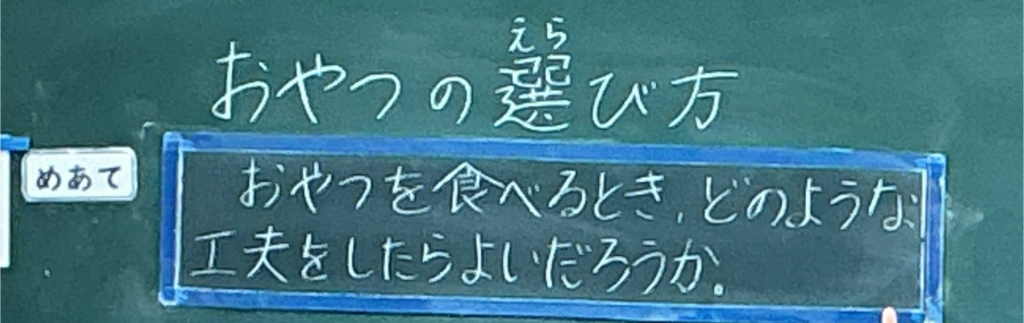 えら
おやつの選び方
めあて
おやつを食べるとき,どのような
工夫をしたらよいだろうか.